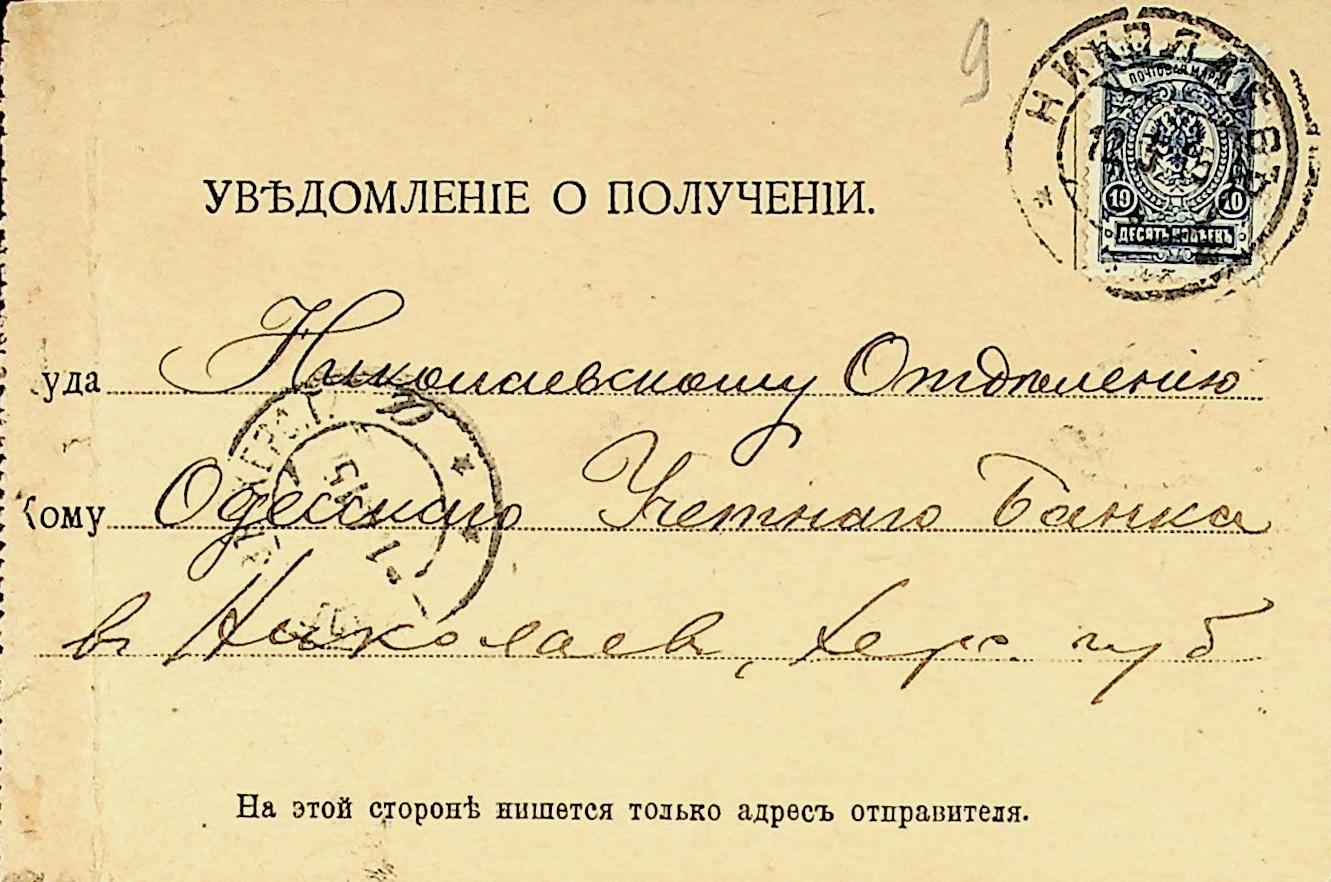 9
НИКОЛАЕВЪ
ПОЧТОВАЯ МАРКА
10 10
ДЕСЯТЬ КОПѢЕКЪ
УВѢДОМЛЕНІЕ О ПОЛУЧЕНІИ.
уда Николаевскому Отдѣленію
Кому Одесскаго Учетнаго Банка
в Николаев, Херс. губ
На этой сторонѣ пишется только адресъ отправителя.